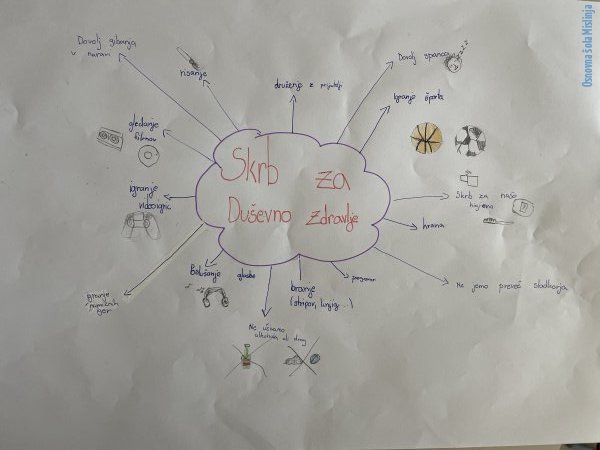 Osnovna šola Mislinja
Dovolj gibanja
v naravi
risanje
druženje z prijatelji
Dovolj spanca
zzz
igranje športa
gledanje
filmov
Skrb za
Duševno zdravlje
igranje
videoigric
Skrb za našo
higieno
hrana
Ne jemo preveč sladkarja
igranje
iger
Poslušanje glasbe
branje
(stripov, knjig...)
pogovor
Ne uživamo
alkohola ali drog